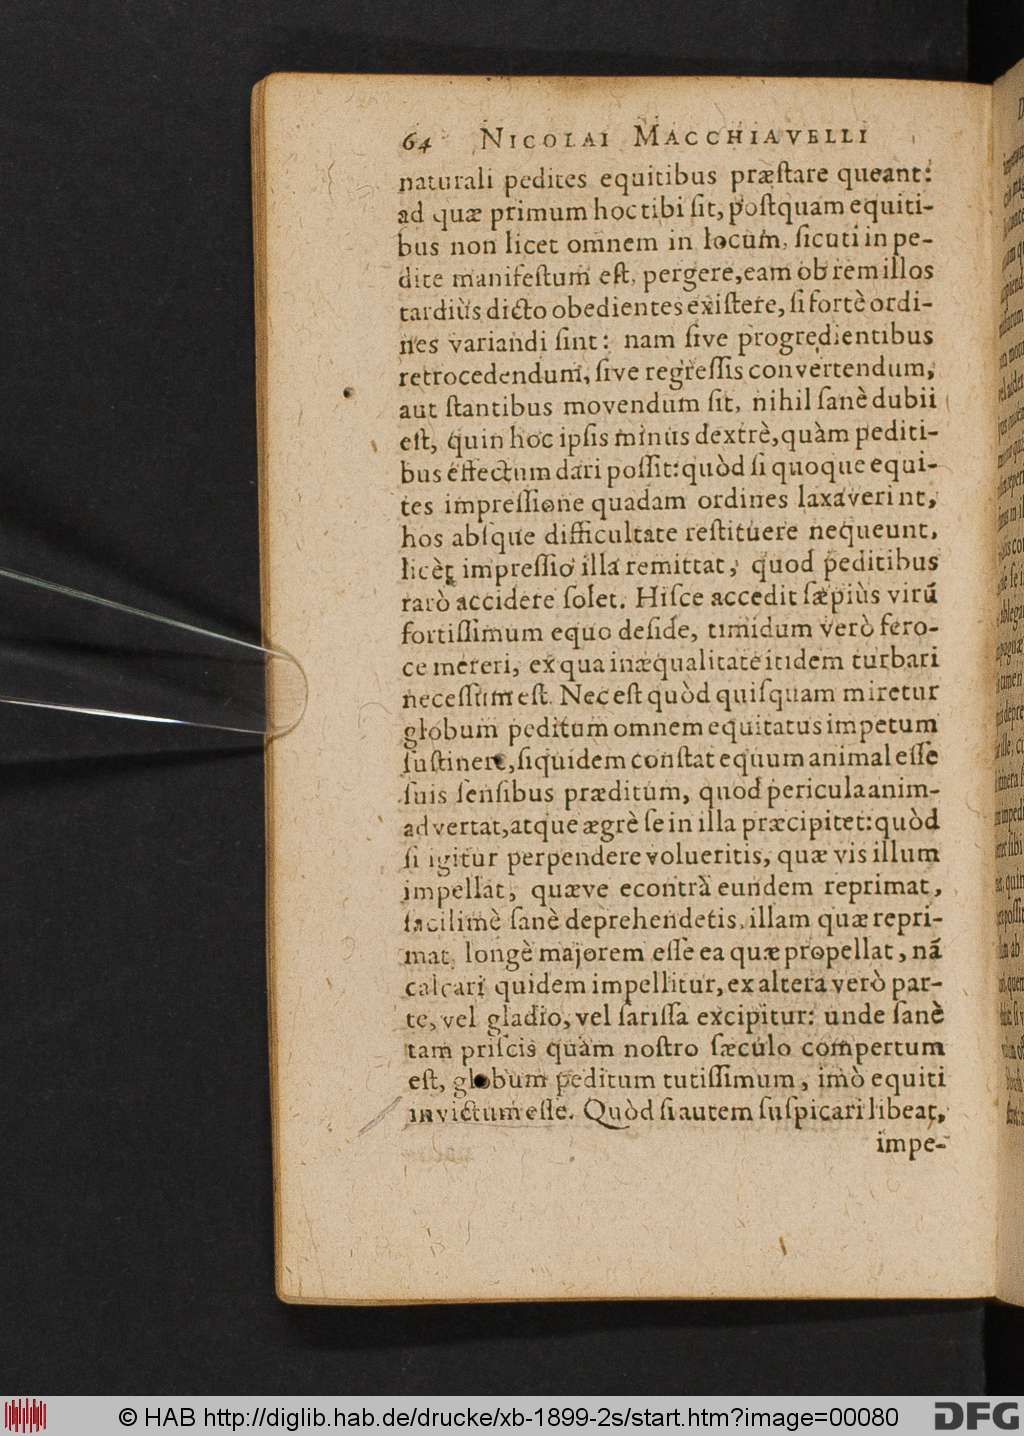 64 NICOLAI MACCHIAVELLI
naturali pedites equitibus præſtare queant:
ad quæ primum hoc tibi ſit, poſtquam equiti-
bus non licet omnem in locum, ſicuti in pe-
dite manifeſtum eſt, pergere, eam ob rem illos
tardiùs dicto obedientes exiſtere, ſi fortè ordi-
nes variandi ſint: nam ſive progredientibus
retrocedendum, ſive regreſſis convertendum,
aut ſtantibus movendum ſit, nihil ſanè dubii
eſt, quin hoc ipſis minùs dextrè, quàm pediti-
bus effectum dari poſſit: quòd ſi quoque equi-
tes impreſſione quadam ordines laxaverint,
hos abſque difficultate reſtituere nequeunt,
licèt impreſſio illa remittat, quod peditibus
rarò accidere ſolet. Hiſce accedit ſæpiùs virũ
fortiſſimum equo deſide, timidum verò fero-
ce mereri, ex qua inæqualitate itidem turbari
neceſſum eſt. Nec eſt quòd quiſquam miretur
globum peditum omnem equitatus impetum
ſuſtinere, ſiquidem conſtat equum animal eſſe
ſuis ſenſibus præditum, quod pericula anim-
advertat, atque ægrè ſe in illa præcipitet: quòd
ſi igitur perpendere volueritis, quæ vis illum
impellat, quæve econtrà eundem reprimat,
facilimè ſanè deprehendetis, illam quæ repri-
mat, longè majorem eſſe ea quæ propellat, nã
calcari quidem impellitur, ex altera verò par-
te, vel gladio, vel ſariſſa excipitur: unde ſanè
tam priſcis quàm noſtro ſæculo compertum
eſt, globum peditum tutiſſimum, imò equiti
invictum eſſe. Quòd ſi autem ſuſpicari libeat,
impe-
© HAB http://diglib.hab.de/drucke/xb-1899-2s/start.htm?image=00080
DFG